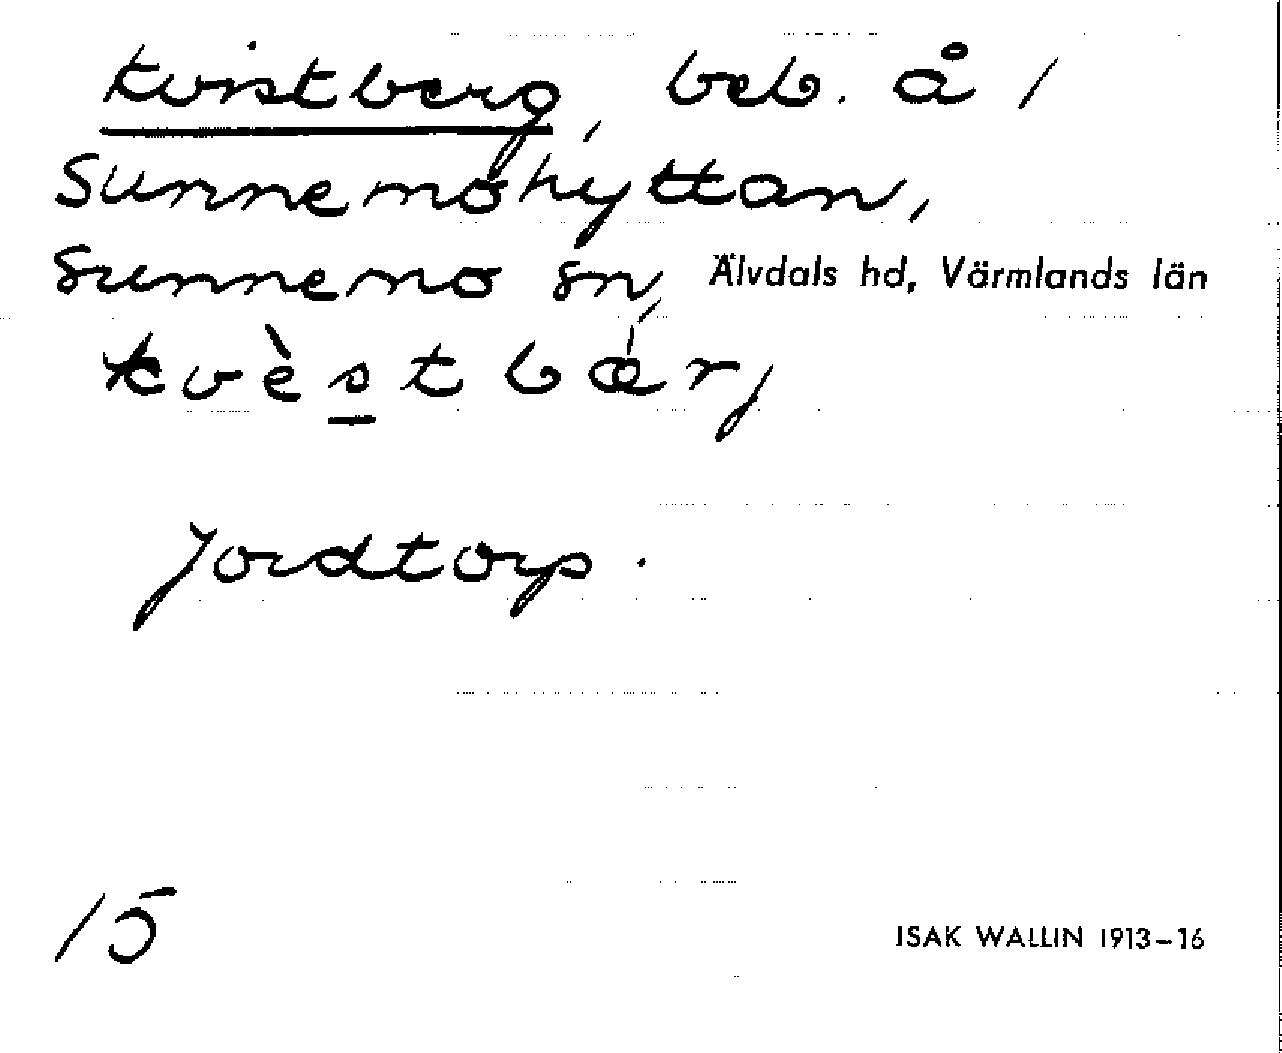 Kvistberg, beb. å 1
Sunnemohyttan,
Sunnemo sn, Älvdals hd, Värmlands län
kvèstbærj
Jordtorp.
15
ISAK WALLIN 1913–16